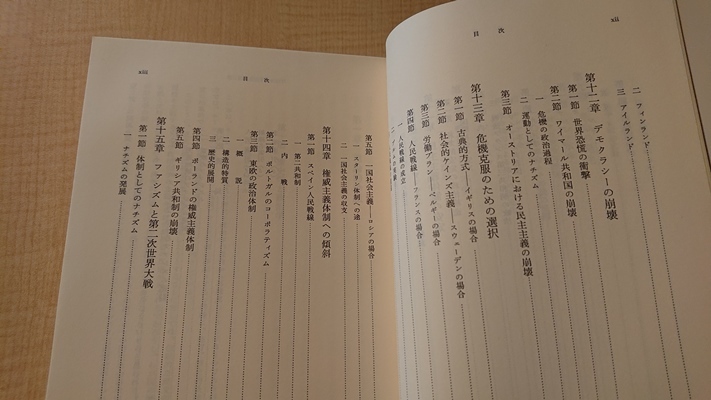 xii
目 次
二 フィンランド
三 アイルランド
第十二章 デモクラシーの崩壊
第一節 世界恐慌の衝撃
第二節 ワイマール共和国の崩壊
一 危機の政治過程
二 運動としてのナチズム
第三節 オーストリアにおける民主主義の崩壊
第十三章 危機克服のための選択
第一節 古典的方式――イギリスの場合
第二節 社会的ケインズ主義――スウェーデンの場合
第三節 労働プラン――ベルギーの場合
第四節 人民戦線――フランスの場合
一 人民戦線の成立
xiii
目 次
第五節 一国社会主義――ロシアの場合
一 スターリン体制への途
二 一国社会主義の収支
第十四章 権威主義体制への傾斜
第一節 スペイン人民戦線
一 第二共和制
二 内戦
第二節 ポルトガルのコーポラティズム
第三節 東欧の政治体制
一 概説
二 構造的特質
三 歴史的展開
第四節 ポーランドの権威主義体制
第五節 ギリシア共和制の崩壊
第十五章 ファシズムと第二次世界大戦
第一節 体制としてのナチズム
一 ナチズムの発展